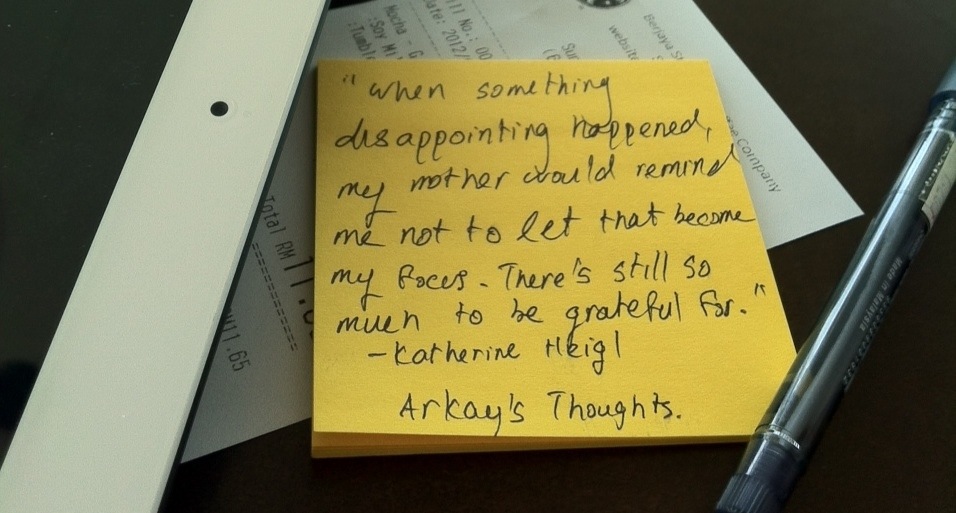 "When something
disappointing happened,
my mother would remind
me not to let that become
my focus. There's still so
much to be grateful for."
- Katherine Heigl
Arkay's Thoughts.
Mocha - G
:Soy Mi
:Tumbl
Date: 2012/
Bill No.: 00
Berjaya St
website
Company
Total RM
11.65